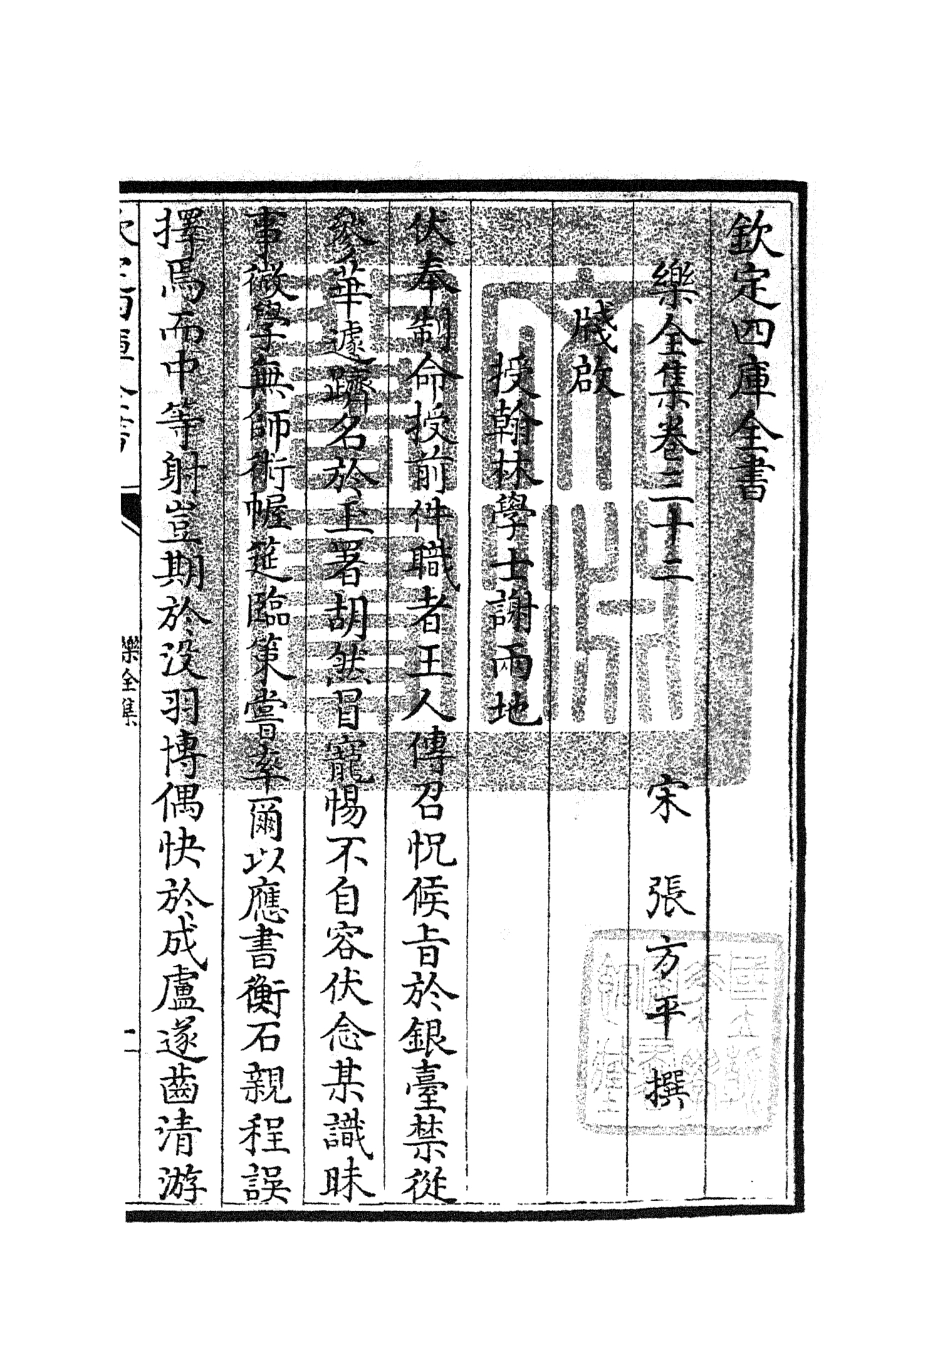 欽定四庫全書
樂全集卷三十二
宋 張方平 撰
牋啟
授翰林學士謝兩地
伏奉制命授前件職者王人傳召怳候旨於銀臺禁從
參華遽躋名於玉署胡然冒寵惕不自容伏念某識昧
事微學無師術幄筵臨策嘗率爾以應書衡石親程誤
擇焉而中等射豈期於沒羽博偶快於成盧遂齒清游
樂全集